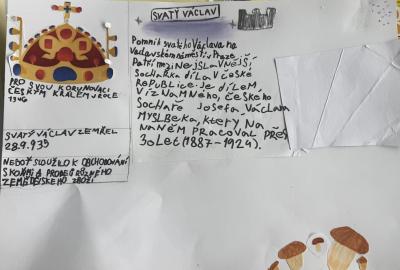 SVATÝ VÁCLAV
Pomník svatého Václava na
Václavském náměstí v Praze
Patří mezi NEJSLAVNĚJŠÍ
SocHařskA díLA v České
REPUBLICE. je díLEM
VÝZNAMNÉHO, ČESKÉHO
SOCHAŘE JOSEFA, VÁCLAVA
MYSLBEKA, KTERÝ NA
NANĚM PRACOVAL PŘES
30 LET (1887-1924).
PRO SVOU KORUNOVACI
ČESKÝM KRÁLEM V ROCE
1346
SVATÝ VÁCLAV ZEMŘEL
28.9.935
NEBOŤ SLOUŽILO K OBCHODOVÁNÍ
S KOŇMI A PRODEJI RŮZNÉHO
ZEMĚDĚLSKÉHO ZBOŽÍ